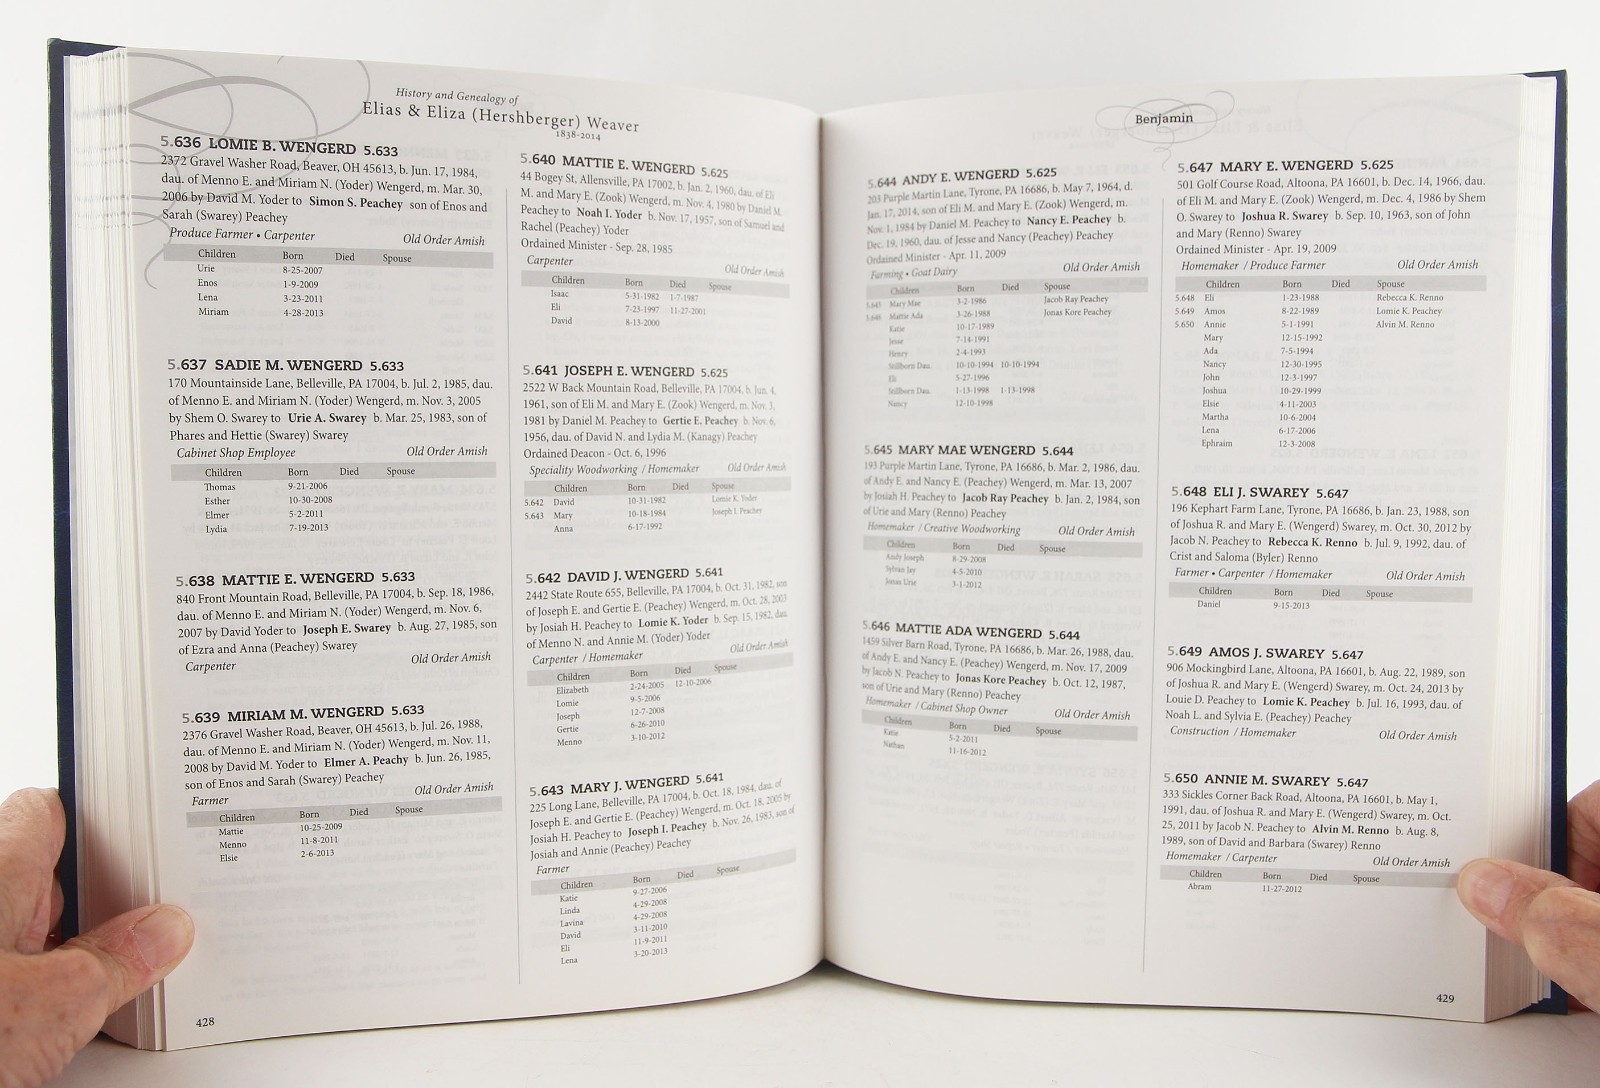 History and Genealogy of
Elias & Eliza (Hershberger) Weaver
1838-2014
5.636 LOMIE B. WENGERD 5.633
2372 Gravel Washer Road, Beaver, OH 45613, b. Jun. 17, 1984,
dau. of Menno E. and Miriam N. (Yoder) Wengerd, m. Mar. 30,
2006 by David M. Yoder to Simon S. Peachey son of Enos and
Sarah (Swarey) Peachey
Produce Farmer • Carpenter Old Order Amish
Children Born Died Spouse
Urie 8-25-2007
Enos 1-9-2009
Lena 3-23-2011
Miriam 4-28-2013
5.637 SADIE M. WENGERD 5.633
170 Mountainside Lane, Belleville, PA 17004, b. Jul. 2, 1985, dau.
of Menno E. and Miriam N. (Yoder) Wengerd, m. Nov. 3, 2005
by Shem O. Swarey to Urie A. Swarey b. Mar. 25, 1983, son of
Phares and Hettie (Swarey) Swarey
Cabinet Shop Employee Old Order Amish
Children Born Died Spouse
Thomas 9-21-2006
Esther 10-30-2008
Elmer 5-2-2011
Lydia 7-19-2013
5.638 MATTIE E. WENGERD 5.633
840 Front Mountain Road, Belleville, PA 17004, b. Sep. 18, 1986,
dau. of Menno E. and Miriam N. (Yoder) Wengerd, m. Nov. 6,
2007 by David Yoder to Joseph E. Swarey b. Aug. 27, 1985, son
of Ezra and Anna (Peachey) Swarey
Carpenter Old Order Amish
5.639 MIRIAM M. WENGERD 5.633
2376 Gravel Washer Road, Beaver, OH 45613, b. Jul. 26, 1988,
dau. of Menno E. and Miriam N. (Yoder) Wengerd, m. Nov. 11,
2008 by David M. Yoder to Elmer A. Peachy b. Jun. 26, 1985,
son of Enos and Sarah (Swarey) Peachey
Farmer Old Order Amish
Children Born Died Spouse
Mattie 10-25-2009
Menno 11-8-2011
Elsie 2-6-2013
428
5.640 MATTIE E. WENGERD 5.625
44 Bogey St, Allensville, PA 17002, b. Jan. 2, 1960, dau. of Eli
M. and Mary E. (Zook) Wengerd, m. Nov. 4, 1980 by Daniel M.
Peachey to Noah I. Yoder b. Nov. 17, 1957, son of Samuel and
Rachel (Peachey) Yoder
Ordained Minister - Sep. 28, 1985
Carpenter Old Order Amish
Children Born Died Spouse
Isaac 5-31-1982 1-7-1987
Eli 7-23-1997 11-27-2001
David 8-13-2000
5.641 JOSEPH E. WENGERD 5.625
2522 W Back Mountain Road, Belleville, PA 17004, b. Jun. 4,
1961, son of Eli M. and Mary E. (Zook) Wengerd, m. Nov. 3,
1981 by Daniel M. Peachey to Gertie E. Peachey b. Nov. 6,
1956, dau. of David N. and Lydia M. (Kanagy) Peachey
Ordained Deacon - Oct. 6, 1996
Speciality Woodworking / Homemaker Old Order Amish
Children Born Died Spouse
5.642 David 10-31-1982 Lomie K. Yoder
5.643 Mary 10-18-1984 Joseph I. Peachey
Anna 6-17-1992
5.642 DAVID J. WENGERD 5.641
2442 State Route 655, Belleville, PA 17004, b. Oct. 31, 1982, son
of Joseph E. and Gertie E. (Peachey) Wengerd, m. Oct. 28, 2003
by Josiah H. Peachey to Lomie K. Yoder b. Sep. 15, 1982, dau.
of Menno N. and Annie M. (Yoder) Yoder
Carpenter / Homemaker Old Order Amish
Children Born Died Spouse
Elizabeth 2-24-2005 12-10-2006
Lomie 9-5-2006
Joseph 12-7-2008
Gertie 6-26-2010
Menno 3-10-2012
5.643 MARY J. WENGERD 5.641
225 Long Lane, Belleville, PA 17004, b. Oct. 18, 1984, dau. of
Joseph E. and Gertie E. (Peachey) Wengerd, m. Oct. 18, 2005 by
Josiah H. Peachey to Joseph I. Peachey b. Nov. 26, 1983, son of
Josiah and Annie (Peachey) Peachey
Farmer
Children Born Died Spouse
Katie 9-27-2006
Linda 4-29-2008
Lavina 4-29-2008
David 3-11-2010
Eli 11-9-2011
Lena 3-20-2013
Benjamin
5.644 ANDY E. WENGERD 5.625
203 Purple Martin Lane, Tyrone, PA 16686, b. May 7, 1964, d.
Jan. 17, 2014, son of Eli M. and Mary E. (Zook) Wengerd, m.
Nov. 1, 1984 by Daniel M. Peachey to Nancy E. Peachey b.
Dec. 19, 1960, dau. of Jesse and Nancy (Peachey) Peachey
Ordained Minister - Apr. 11, 2009
Farming • Goat Dairy Old Order Amish
Children Born Died Spouse
5.645 Mary Mae 3-2-1986 Jacob Ray Peachey
5.646 Mattie Ada 3-26-1988 Jonas Kore Peachey
Katie 10-17-1989
Jesse 7-14-1991
Henry 2-4-1993
Stillborn Dau. 10-10-1994 10-10-1994
Eli 5-27-1996
Stillborn Dau. 1-13-1998 1-13-1998
Nancy 12-10-1998
5.645 MARY MAE WENGERD 5.644
193 Purple Martin Lane, Tyrone, PA 16686, b. Mar. 2, 1986, dau.
of Andy E. and Nancy E. (Peachey) Wengerd, m. Mar. 13, 2007
by Josiah H. Peachey to Jacob Ray Peachey b. Jan. 2, 1984, son
of Urie and Mary (Renno) Peachey
Homemaker / Creative Woodworking Old Order Amish
Children Born Died Spouse
Andy Joseph 8-29-2008
Sylvan Jay 4-5-2010
Jonas Urie 3-1-2012
5.646 MATTIE ADA WENGERD 5.644
1459 Silver Barn Road, Tyrone, PA 16686, b. Mar. 26, 1988, dau.
of Andy E. and Nancy E. (Peachey) Wengerd, m. Nov. 17, 2009
by Jacob N. Peachey to Jonas Kore Peachey b. Oct. 12, 1987,
son of Urie and Mary (Renno) Peachey
Homemaker / Cabinet Shop Owner Old Order Amish
Children Born Died Spouse
Katie 5-2-2011
Nathan 11-16-2012
5.647 MARY E. WENGERD 5.625
501 Golf Course Road, Altoona, PA 16601, b. Dec. 14, 1966, dau.
of Eli M. and Mary E. (Zook) Wengerd, m. Dec. 4, 1986 by Shem
O. Swarey to Joshua R. Swarey b. Sep. 10, 1963, son of John
and Mary (Renno) Swarey
Ordained Minister - Apr. 19, 2009
Homemaker / Produce Farmer Old Order Amish
Children Born Died Spouse
5.648 Eli 1-23-1988 Rebecca K. Renno
5.649 Amos 8-22-1989 Lomie K. Peachey
5.650 Annie 5-1-1991 Alvin M. Renno
Mary 12-15-1992
Ada 7-5-1994
Nancy 12-30-1995
John 12-3-1997
Joshua 10-29-1999
Elsie 4-11-2003
Martha 10-6-2004
Lena 6-17-2006
Ephraim 12-3-2008
5.648 ELI J. SWAREY 5.647
196 Kephart Farm Lane, Tyrone, PA 16686, b. Jan. 23, 1988, son
of Joshua R. and Mary E. (Wengerd) Swarey, m. Oct. 30, 2012 by
Jacob N. Peachey to Rebecca K. Renno b. Jul. 9, 1992, dau. of
Crist and Saloma (Byler) Renno
Farmer • Carpenter / Homemaker Old Order Amish
Children Born Died Spouse
Daniel 9-15-2013
5.649 AMOS J. SWAREY 5.647
906 Mockingbird Lane, Altoona, PA 16601, b. Aug. 22, 1989, son
of Joshua R. and Mary E. (Wengerd) Swarey, m. Oct. 24, 2013 by
Louie D. Peachey to Lomie K. Peachey b. Jul. 16, 1993, dau. of
Noah L. and Sylvia E. (Peachey) Peachey
Construction / Homemaker Old Order Amish
5.650 ANNIE M. SWAREY 5.647
333 Sickles Corner Back Road, Altoona, PA 16601, b. May 1,
1991, dau. of Joshua R. and Mary E. (Wengerd) Swarey, m. Oct.
25, 2011 by Jacob N. Peachey to Alvin M. Renno b. Aug. 8,
1989, son of David and Barbara (Swarey) Renno
Homemaker / Carpenter Old Order Amish
Children Born Died Spouse
Abram 11-27-2012
429